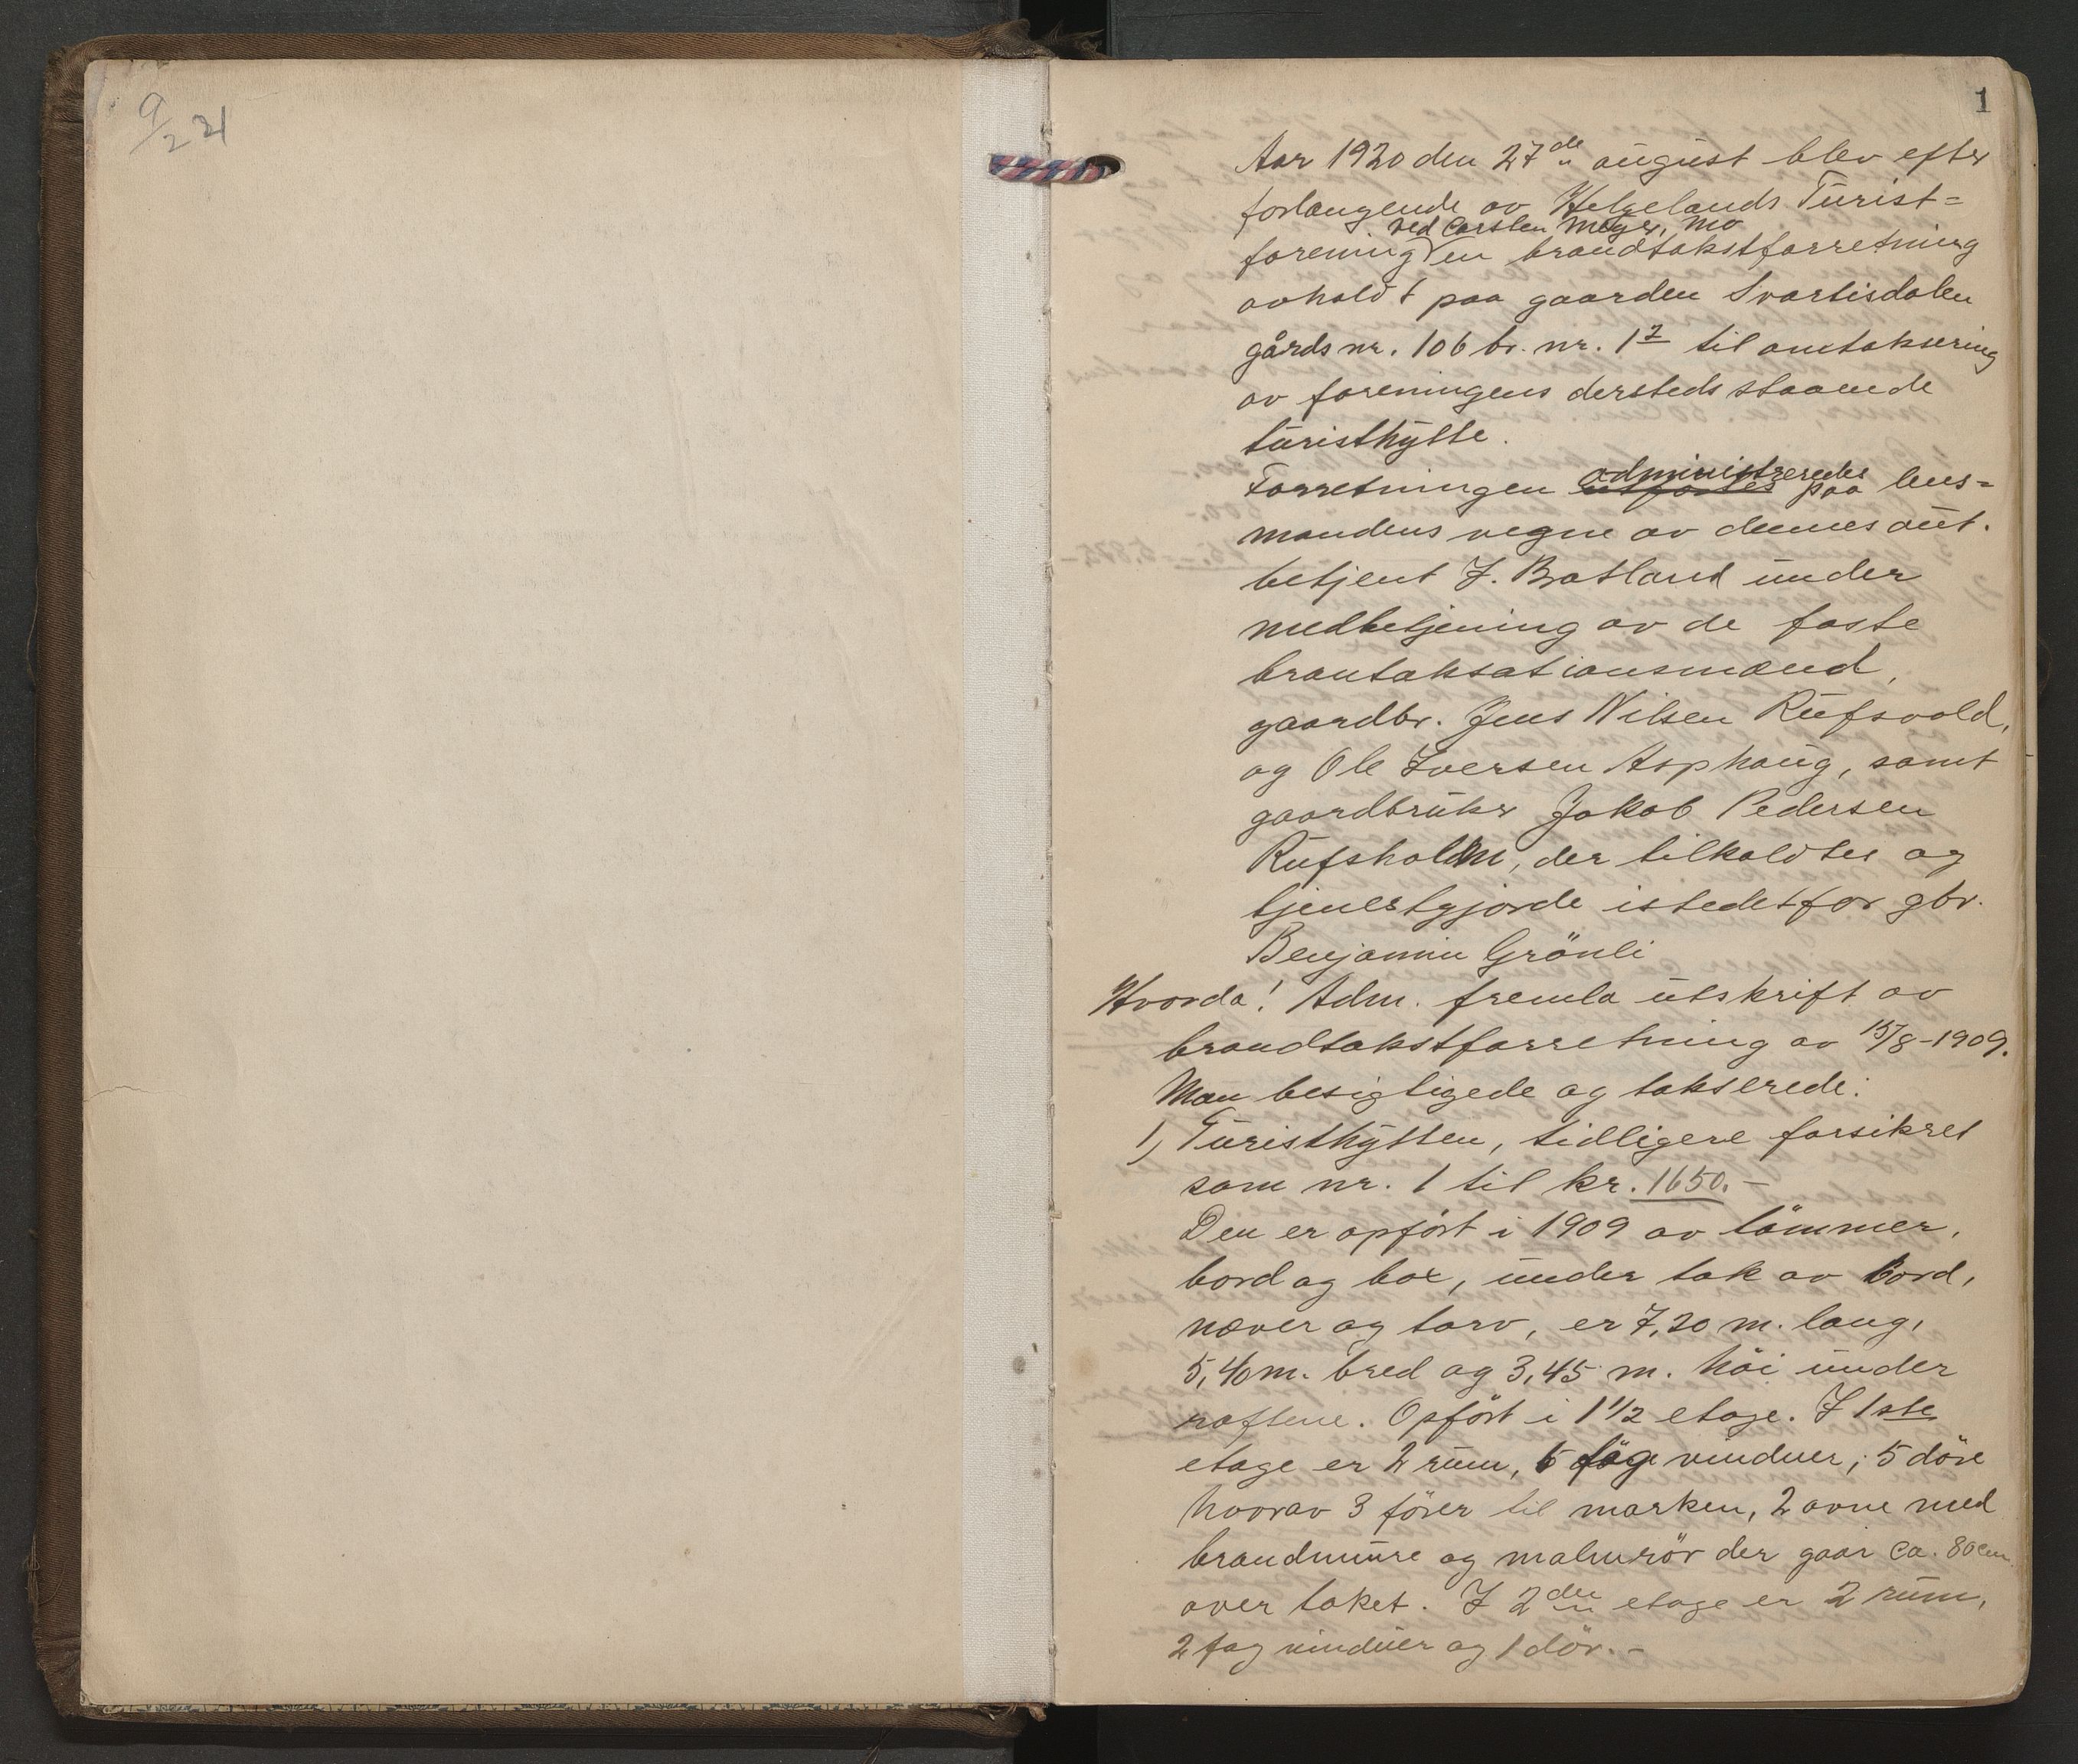 9/2 21
1
Aar 1920 den 27de august blev efter
forlangende av Helgelands Turist=
ved Carsten Meyer, Mo
forening en brandtakstforretning
avholdt paa gaarden Svartisdalen
gårds nr. 106 br. nr. 12 til omtaksering
av foreningens dersteds staaende
turisthytte.
administreredes
Forretningen utfortes paa lens=
mandens vegne av dennes aut.
betjent J. Bratland under
medbetjening av de faste
brantaksationsmænd,
gaardbr. Jens Nilsen Rufsvold,
og Ole Iversen Asphaug, samt
gaardbruker Jakob Pedersen
Rufsholm, der tilkaldtes og
tjenestgjorde istedetfor gbr.
Benjamin Grönli
Hvorda! Adm. fremla utskrift av
brandtakstforretning av 15/8-1909.
Man besigtigede og takserede:
1) Turisthytten, tidligere forsikret
som nr. 1 til kr. 1650.-
Den er opfört i 1909 av tömmer,
bord og box, under tak av bord,
næver og torv, er 7,20 m. lang,
5,40 m. bred og 3,45 m. höi under
raftene. Opfört i 1 1/2 etage. I 1ste
etage er 2 rum, 5 fag vinduer, 5 döre
hvorav 3 förer til marken, 2 ovne med
brandmure og malmrör der gaar ca. 80 cm.
over taket. I 2den etage er 2 rum,
2 fag vinduer og 1 dör.-